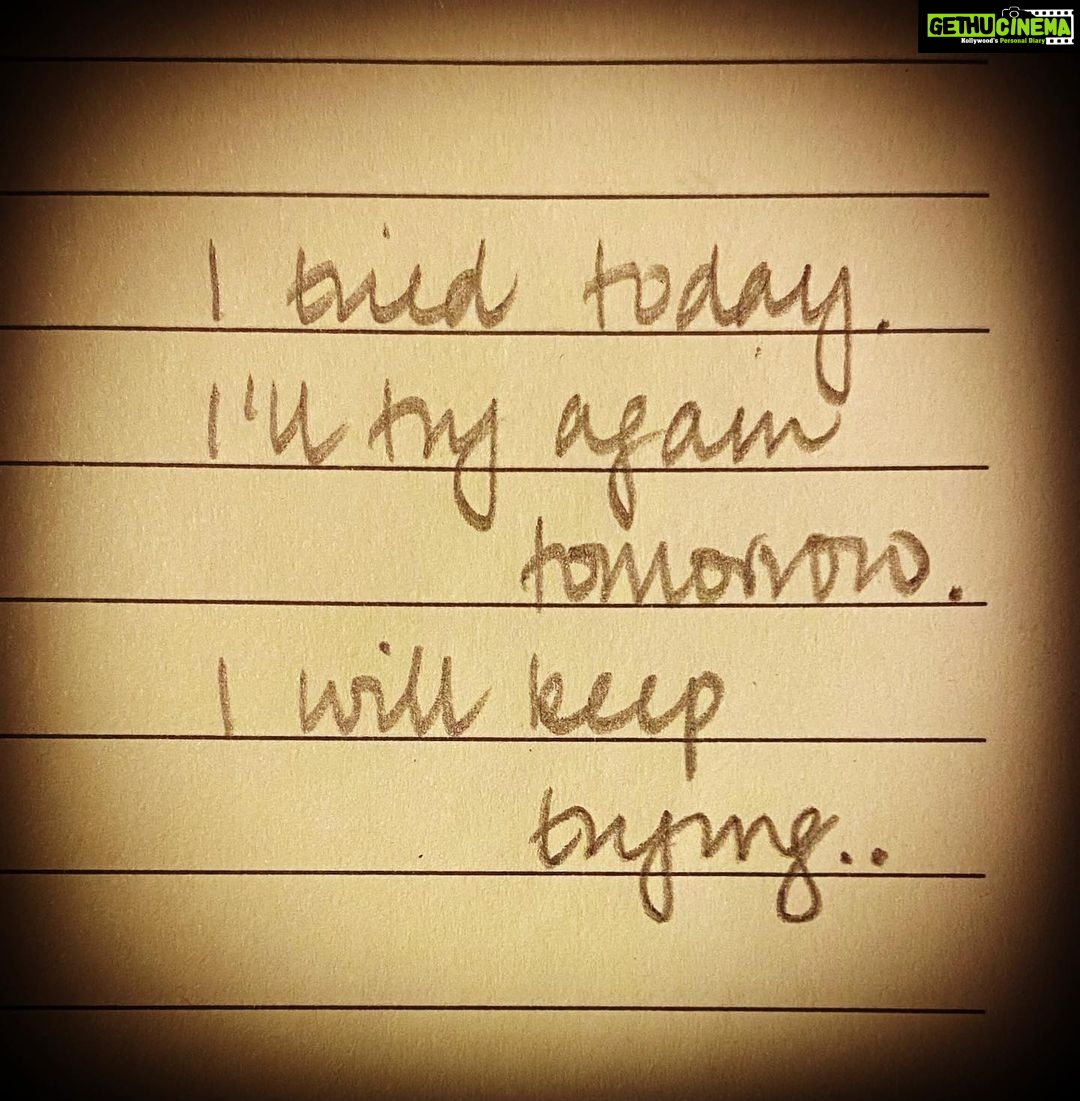 GETHUCINEMA
Kollywood's Personal Diary
I tried today.
I'll try again
tomorrow.
I will keep
trying..